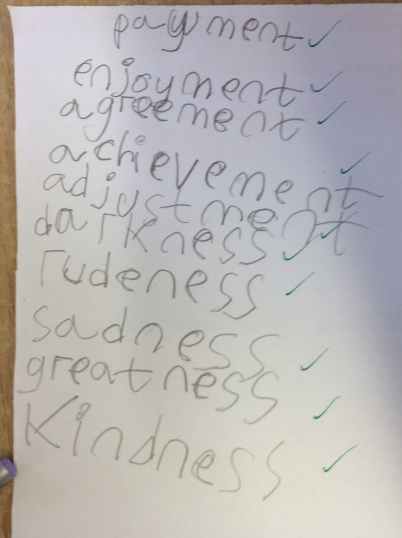 payment
enjoyment
agreement
achievement
adjustment
darkness
rudeness
sadness
greatness
Kindness